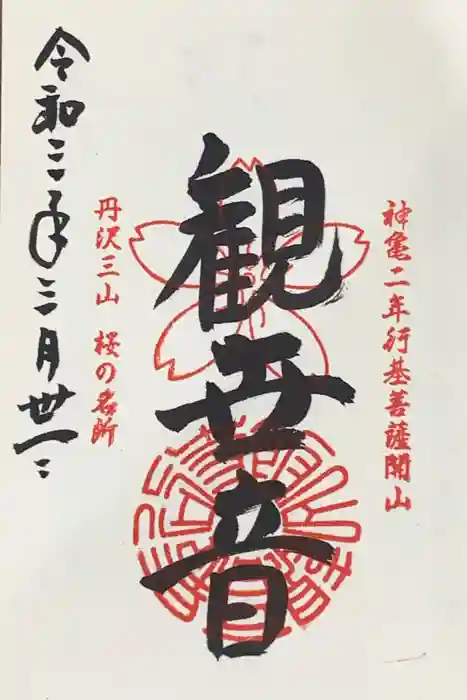 神亀二年行基菩薩開山
観世音
丹沢三山 桜の名所
令和三年三月卅一日